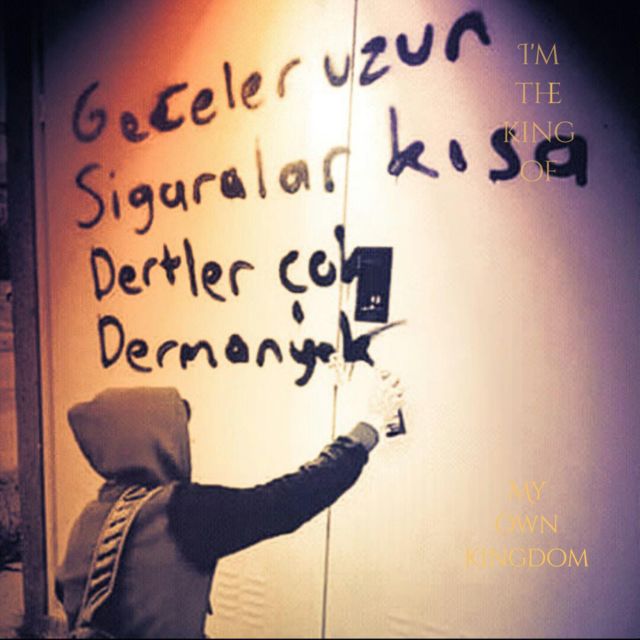 Geceler uzun
Siguralar kısa
Dertler çok
Derman yok
I'M
THE
KING
OF
MY
OWN
KINGDOM